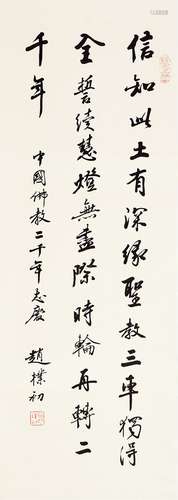 信知此土有深緣聖教三車獨得
全誓續慧燈無盡際時輪再轉二
千年
中國佛教二千年志慶
趙樸初